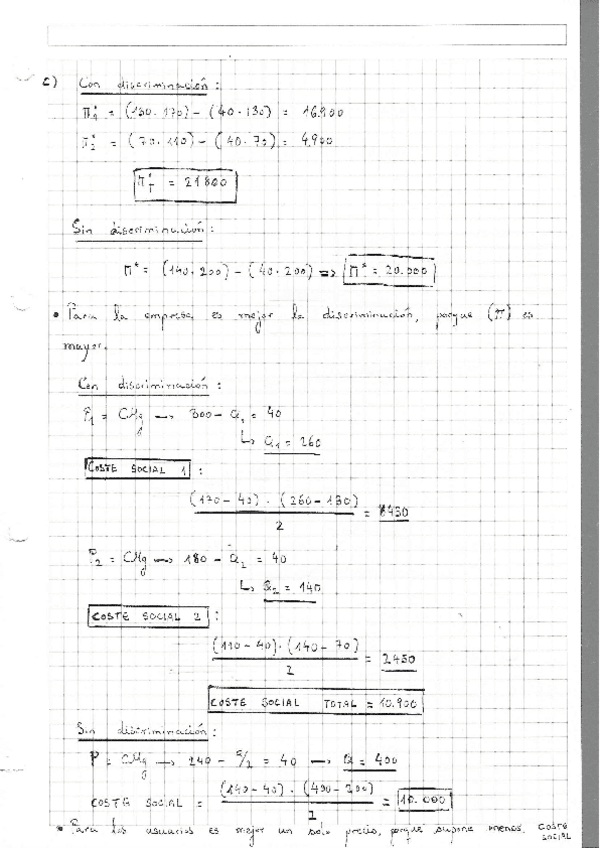 c) Con discriminación:
Π₁* = (130·170) - (40·130) = 16.900
Π₂* = (70·110) - (40·70) = 4.900
Π_T* = 21800
Sin discriminación:
Π* = (140·200) - (40·200) ⇒ Π* = 20.000
• Para la empresa es mejor la discriminación, porque (π) es
mayor.
Con discriminación:
P₁ = CMg → 300 - Q₁ = 40
↳ Q₁ = 260
COSTE SOCIAL 1:
(170-40)·(260-130)
/ 2 = 8450
P₂ = CMg → 180 - Q₂ = 40
↳ Q₂ = 140
COSTE SOCIAL 2:
(110-40)·(140-70)
/ 2 = 2450
COSTE SOCIAL TOTAL = 10.900
Sin discriminación:
P = CMg → 240 - Q/2 = 40 → Q = 400
COSTE SOCIAL = (140-40)·(400-200) / 2 = 10.000
• Para los usuarios es mejor un solo precio, porque supone menos COSTE
SOCIAL